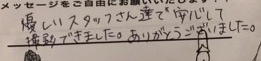 メッセージをご自由にお願いいたします!
優しいスタッフさん達で安心して
運動できました。ありがとうございました。